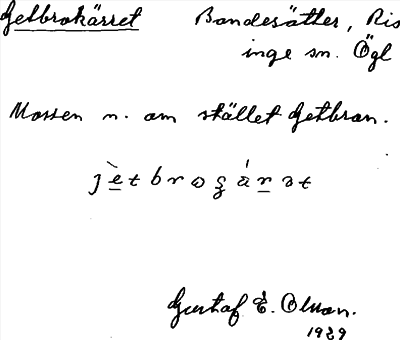 Getbrokärret Bandesätter, Ris
inge sn. Ögl
Mossen n. om stället Getbron.
Gustaf E. Olsson.
1929